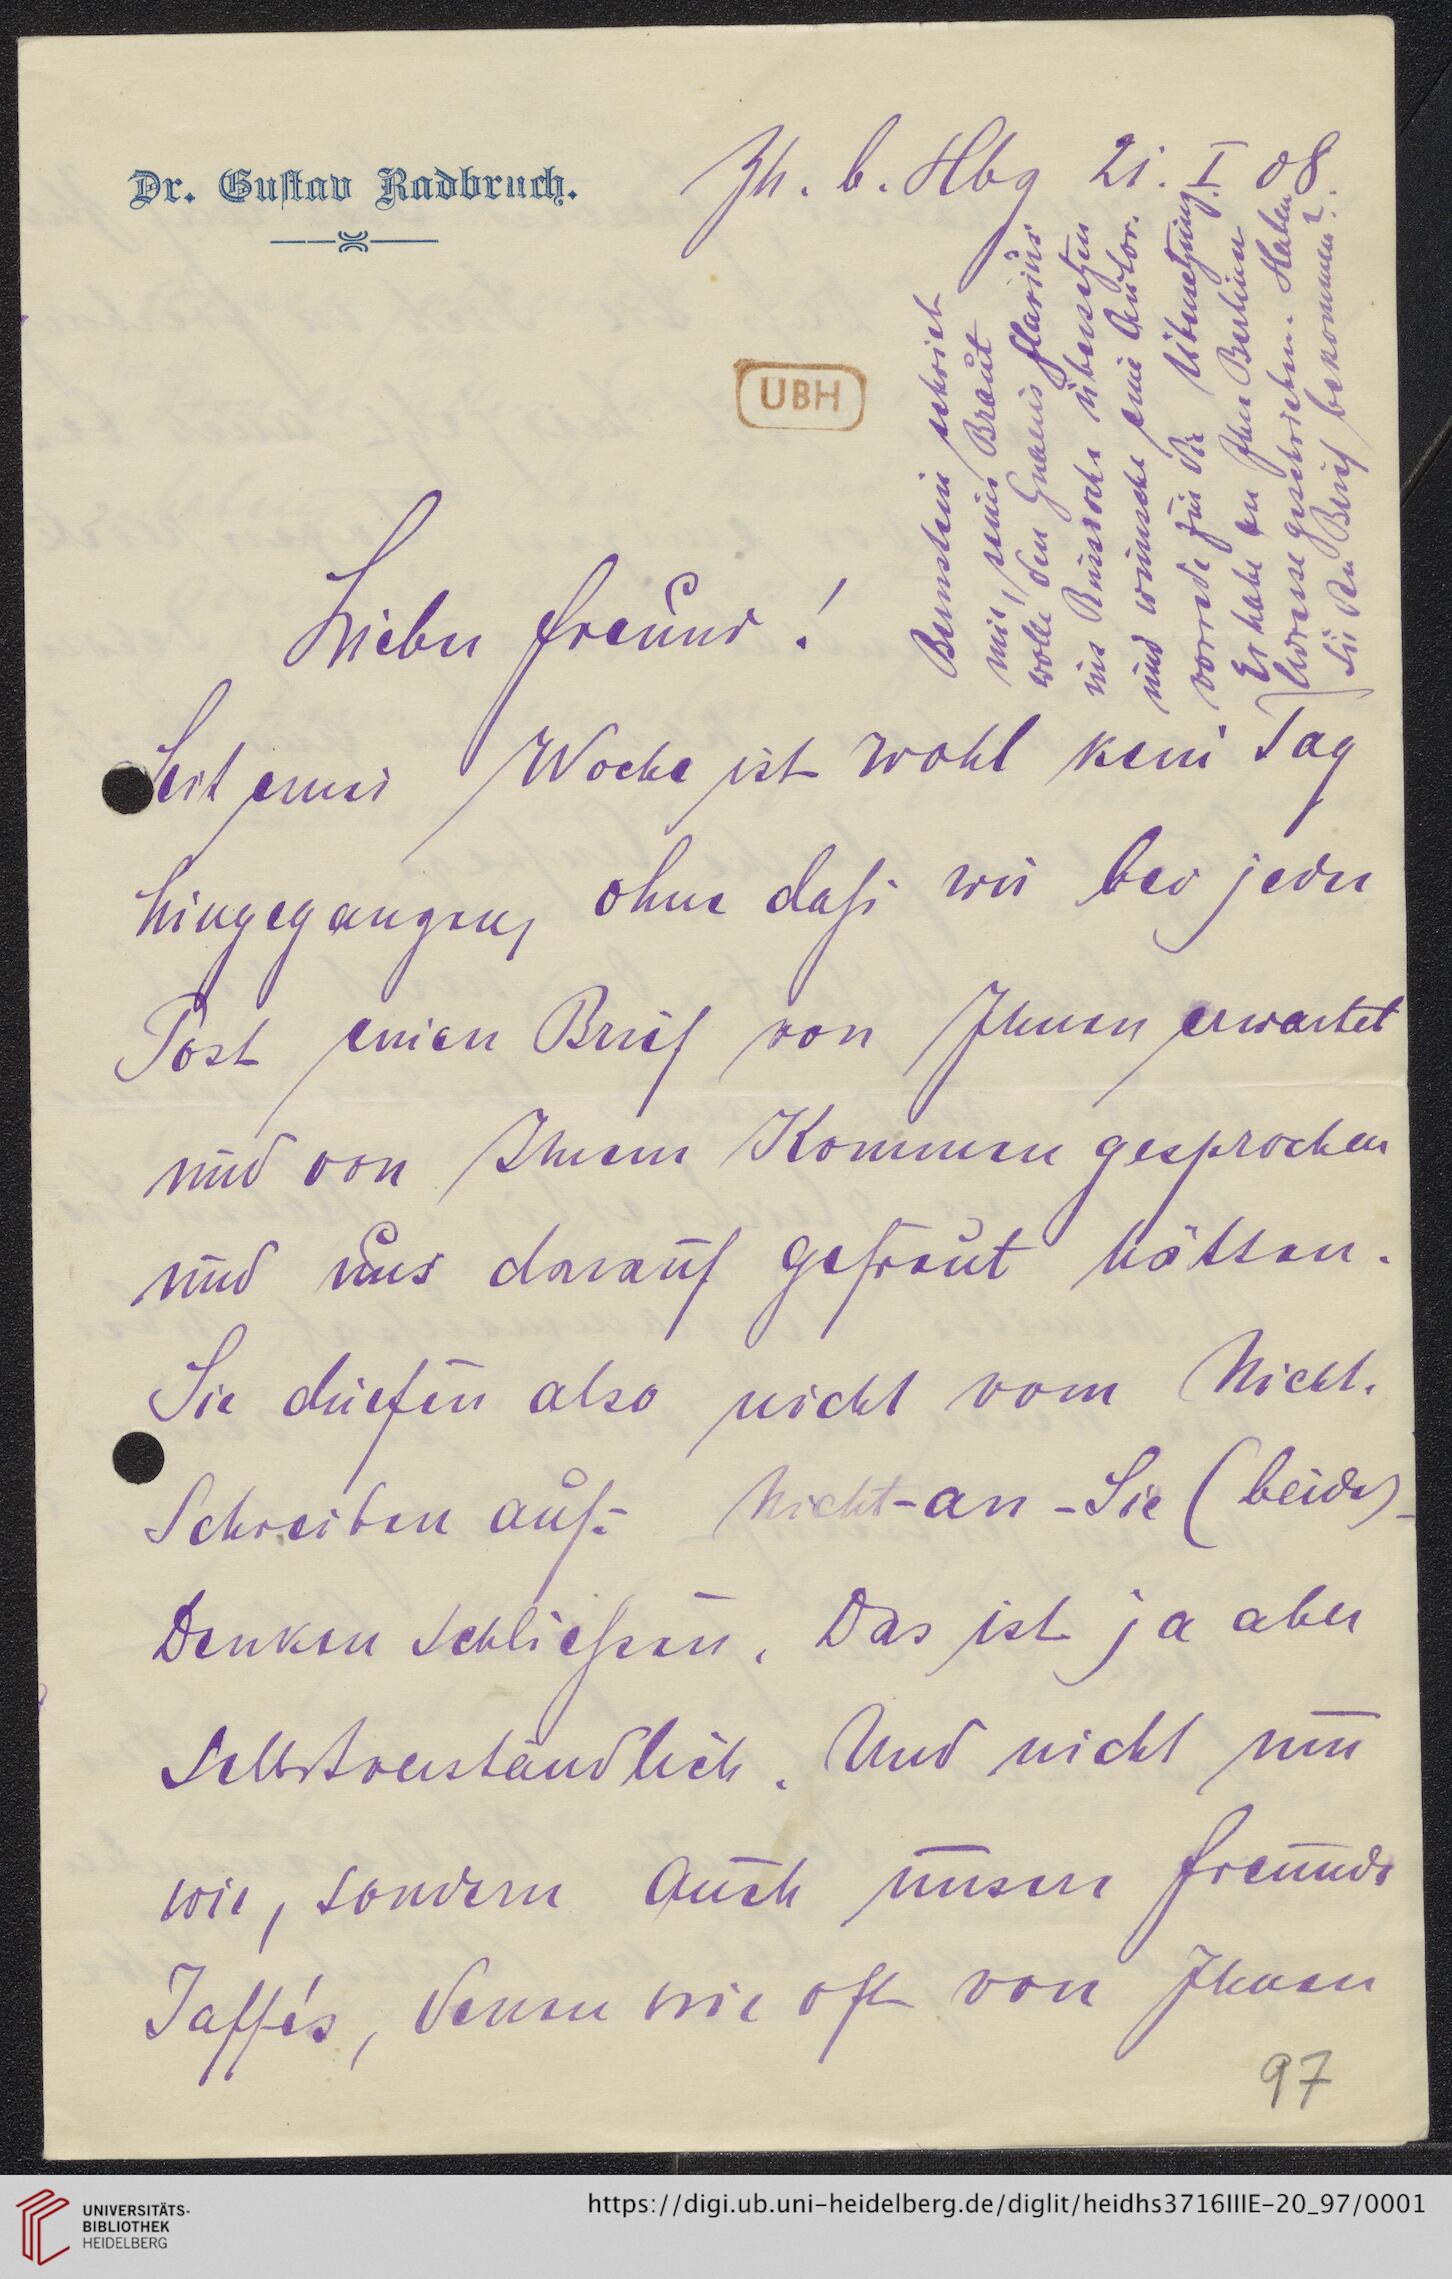 Dr. Gustav Radbruch.
Zh. b. Hbg 21. I. 08.
Bernstein schrieb
mir, seine Braut
wolle den Gnaeus Flavius
ins Russische übersetzen
und wünsche eine Autor-
vorrede für die Übersetzung.
Er habe an Ihre Berliner
Adresse geschrieben. Haben
Sie den Brief bekommen?
UBH
Lieber Freund!
Seit einer Woche ist wohl kein Tag
hingegangen, ohne daß wir bei jeder
Post einen Brief von Ihnen erwartet
und von Ihrem Kommen gesprochen
und uns darauf gefreut hätten.
Sie dürfen also nicht vom Nicht-
Schreiben aufs Nicht-an-Sie (beide)-
Denken schließen. Das ist ja aber
selbstverständlich. Und nicht nur
wir, sondern auch unsere Freunde
Jaffés, denen wir oft von Ihnen
97
UNIVERSITÄTS-
BIBLIOTHEK
HEIDELBERG
https://digi.ub.uni-heidelberg.de/diglit/heidhs3716IIIE-20_97/0001